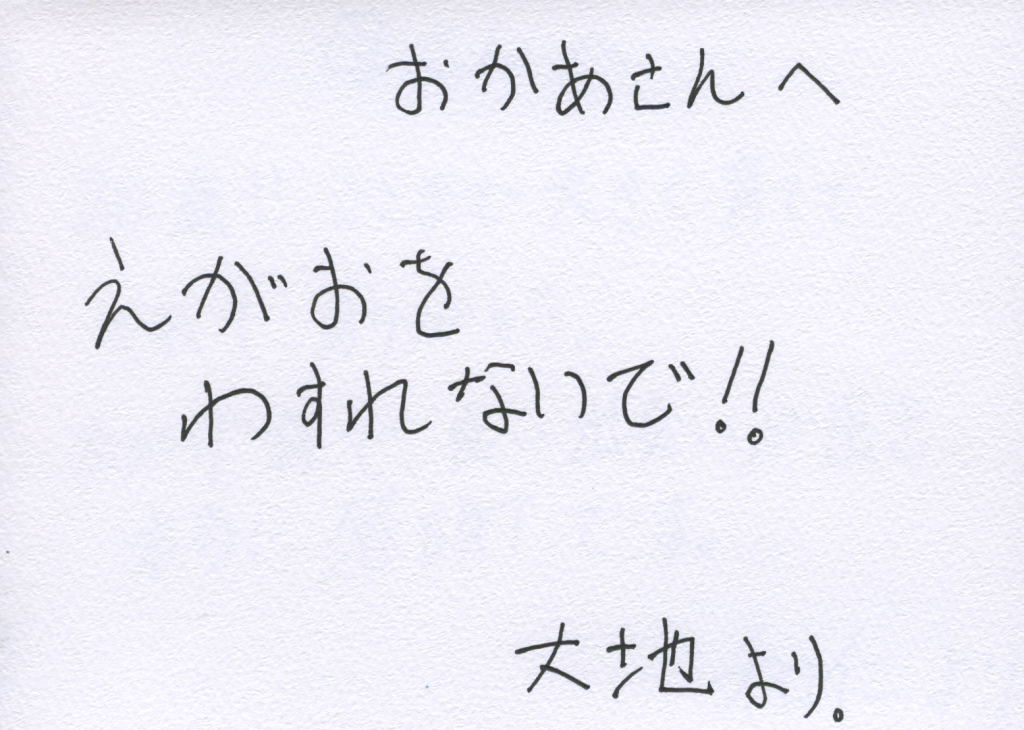 おかあさんへ
えがおを
わすれないで!!
大地より。